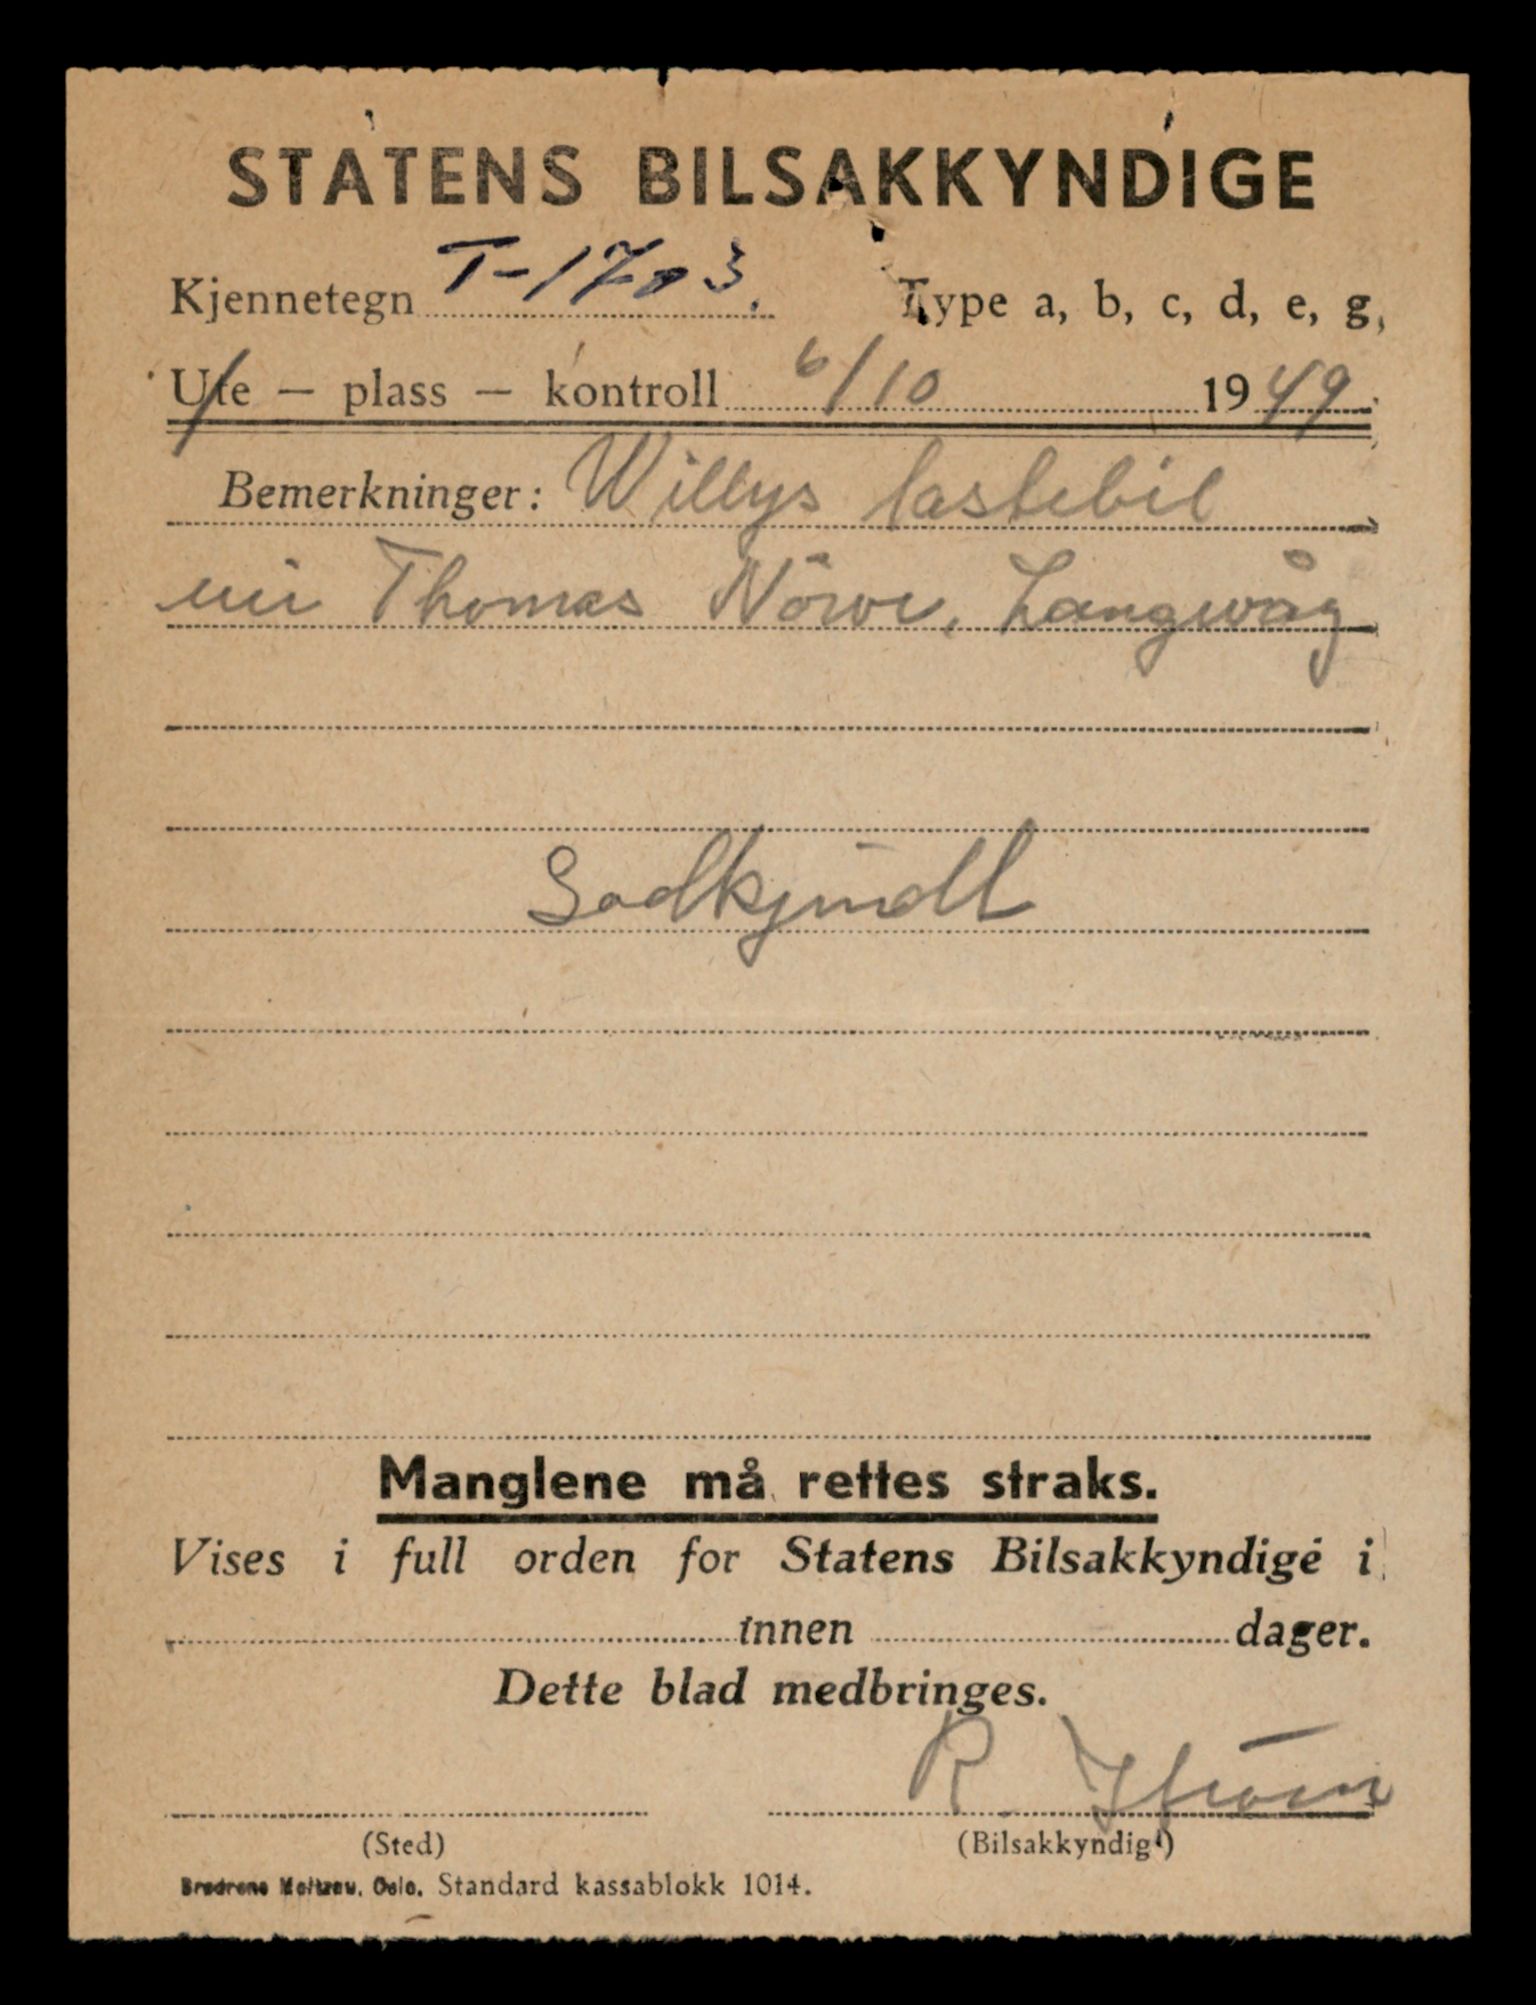 STATENS BILSAKKYNDIGE
Kjennetegn T-1703. Type a, b, c, d, e, g,
Ute — plass — kontroll 6/10 1949
Bemerkninger: Willys lastebil
Thomas Nörve, Langevåg
Godkjendt
Manglene må rettes straks.
Vises i full orden for Statens Bilsakkyndige i
innen dager.
Dette blad medbringes.
R
(Sted) (Bilsakkyndig)
Brødrene Meltzow, Oslo. Standard kassablokk 1014.